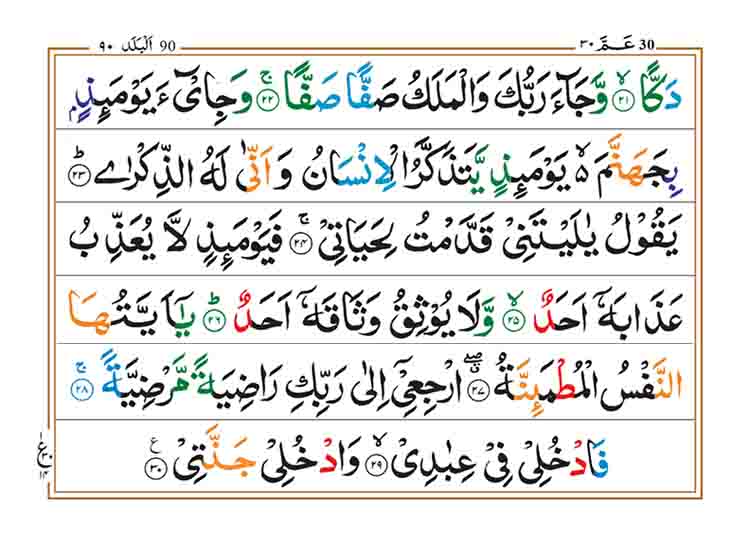 ٩٠ اَلْبَلَد 90
٣٠ عَمَّ 30
دَكًّا ۙ﴿٢١﴾ وَّجَآءَ رَبُّكَ وَالْمَلَكُ صَفًّا صَفًّا ۚ﴿٢٢﴾ وَجِایْٓءَ یَوْمَىِٕذٍۭ
بِجَهَنَّمَ ۙ۬ یَوْمَىِٕذٍ یَّتَذَكَّرُ الْاِنْسَانُ وَ اَنّٰى لَهُ الذِّكْرٰى ؕ﴿٢٣﴾
یَقُوْلُ یٰلَیْتَنِیْ قَدَّمْتُ لِحَیَاتِیْ ۚ﴿٢٤﴾ فَیَوْمَىِٕذٍ لَّا یُعَذِّبُ
عَذَابَهٗۤ اَحَدٌ ۙ﴿٢٥﴾ وَّلَا یُوْثِقُ وَثَاقَهٗۤ اَحَدٌ ؕ﴿٢٦﴾ یٰۤاَیَّتُهَا
النَّفْسُ الْمُطْمَىِٕنَّةُ ۗۖ﴿٢٧﴾ ارْجِعِیْۤ اِلٰى رَبِّكِ رَاضِیَةً مَّرْضِیَّةً ۚ﴿٢٨﴾
فَادْخُلِیْ فِیْ عِبٰدِیْ ۙ﴿٢٩﴾ وَادْخُلِیْ جَنَّتِیْ ۧ﴿٣٠﴾